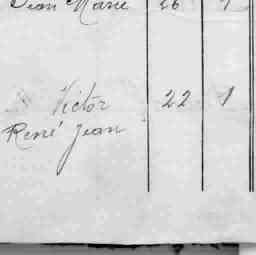 Jean Marie 26 1
Victor 22 1
René Jean